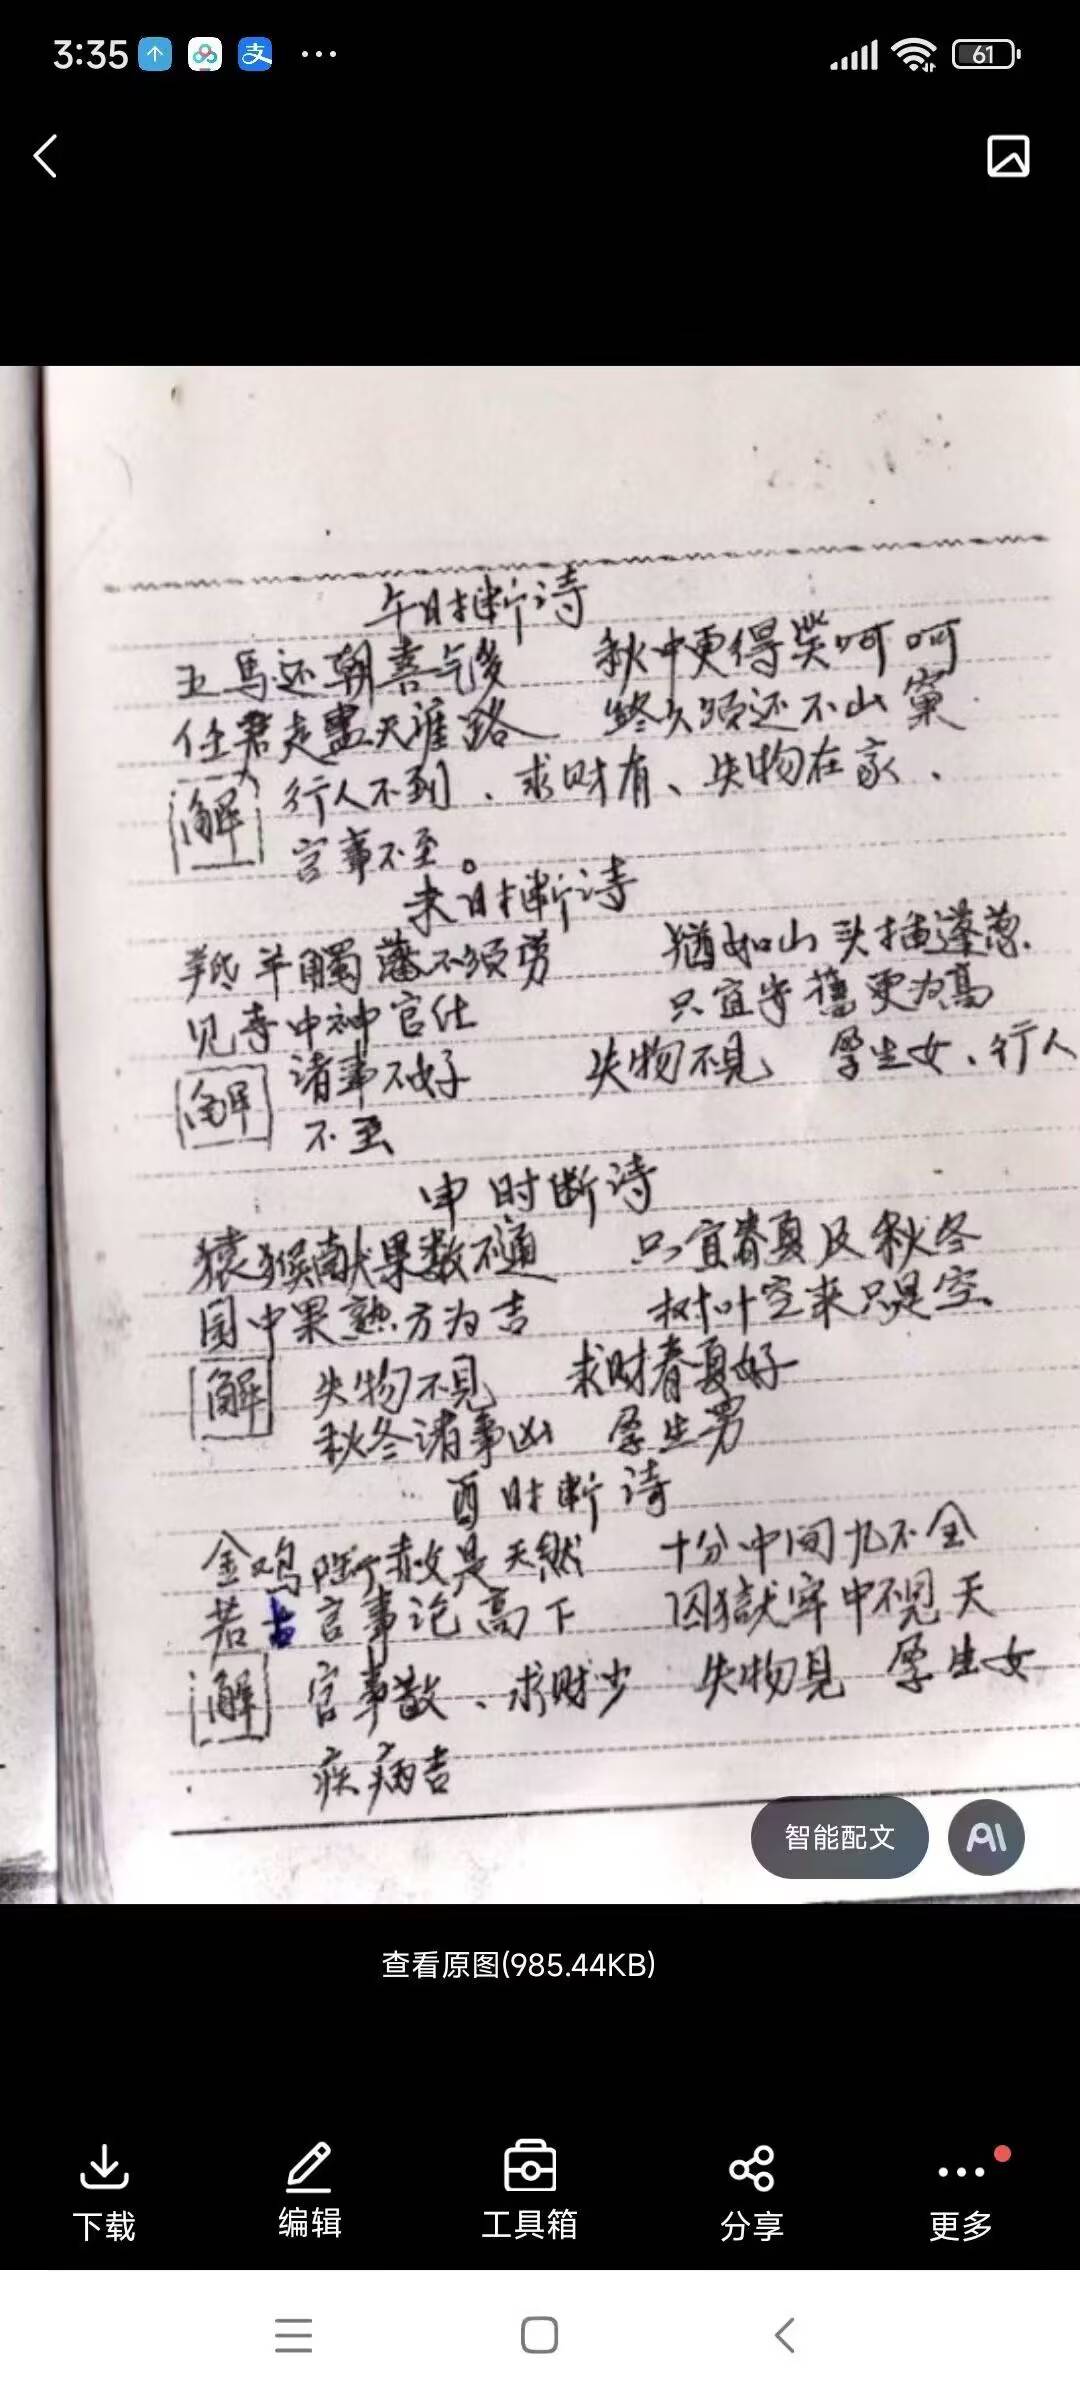 3:35
61
午时断诗
玉馬还朝喜气多 秋中更得笑呵呵
任君走盡天涯路 終久须还不出窠
解 行人不到、求财有、失物在家、
官事不至。
未时断诗
羝羊觸藩不须劳 猶如山头插蓬蒿
见寺中神官仕 只宜守舊更为高
解 诸事不好 失物不見 孕生女、行人
不至
申时断诗
猿猴献果数不通 只宜春夏及秋冬
园中果熟方为吉 树叶空来只是空
解 失物不見 求财春夏好
秋冬诸事凶 孕生男
酉时断诗
金鸡 赦是天然 十分中间九不全
若占官事论高下 囚獄牢中不見天
解 官事散、求财少 失物見 孕生女
疾病吉
智能配文
AI
查看原图(985.44KB)
下载 编辑 工具箱 分享 更多